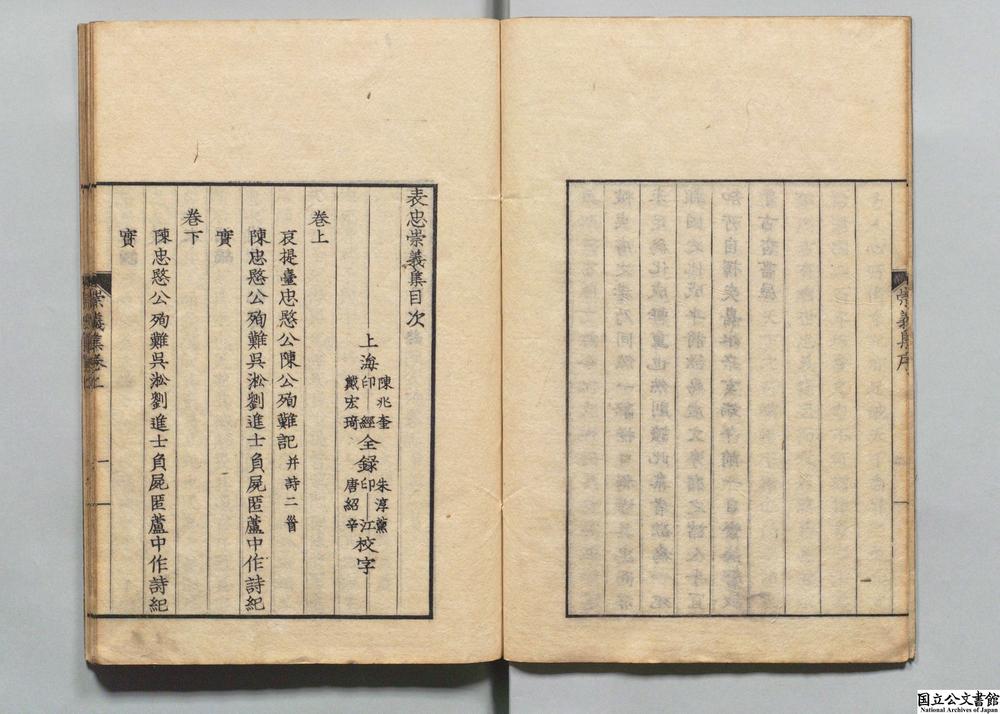 崇義集序
表忠崇義集目次
上海
陳兆奎
印經
戴宏琦
全錄
朱淳薰
印江
唐紹辛
校字
卷上
哀提臺忠愍公陳公殉難記 并詩二首
陳忠愍公殉難吳淞劉進士負屍匿蘆中作詩紀
實
卷下
陳忠愍公殉難吳淞劉進士負屍匿蘆中作詩紀
實
崇義集卷上
一
国立公文書館
National Archives of Japan